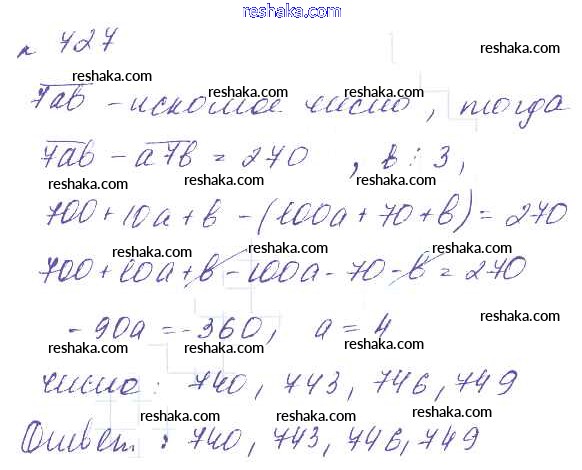 reshaka.com
№ 727
reshaka.com
reshaka.com reshaka.com reshaka.com
7ab - искомое число, тогда
7ab - a7b = 270, b ⋮ 3,
reshaka.com reshaka.com reshaka.com
700 + 10a + b - (100a + 70 + b) = 270
reshaka.com reshaka.com reshaka.com
700 + 10a + b - 100a - 70 - b = 270
- 90a = -360, a = 4
reshaka.com reshaka.com reshaka.com
число: 740, 743, 746, 749
reshaka.com reshaka.com reshaka.com
Ответ: 740, 743, 746, 749
reshaka.com